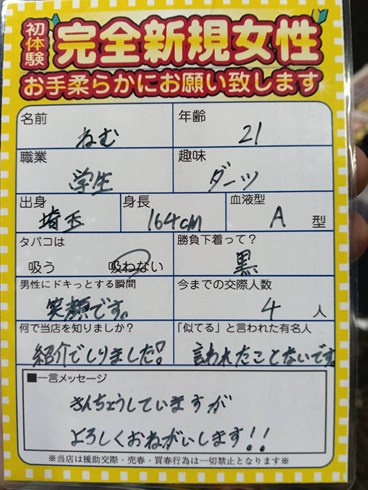 初体験 完全新規女性
お手柔らかにお願い致します
名前 ねむ 年齢 21
職業 学生 趣味 ダーツ
出身 埼玉 身長 164cm 血液型 A 型
タバコは 吸う 吸わない 勝負下着って? 黒
男性にドキっとする瞬間 笑顔です。 今までの交際人数 4 人
何で当店を知りましたか? 紹介でしりました! 「似てる」と言われた有名人 言われたことないです。
■一言メッセージ
きんちょうしていますが
よろしくおねがいします!!
※当店は援助交際・売春・買春行為は一切禁止となります※